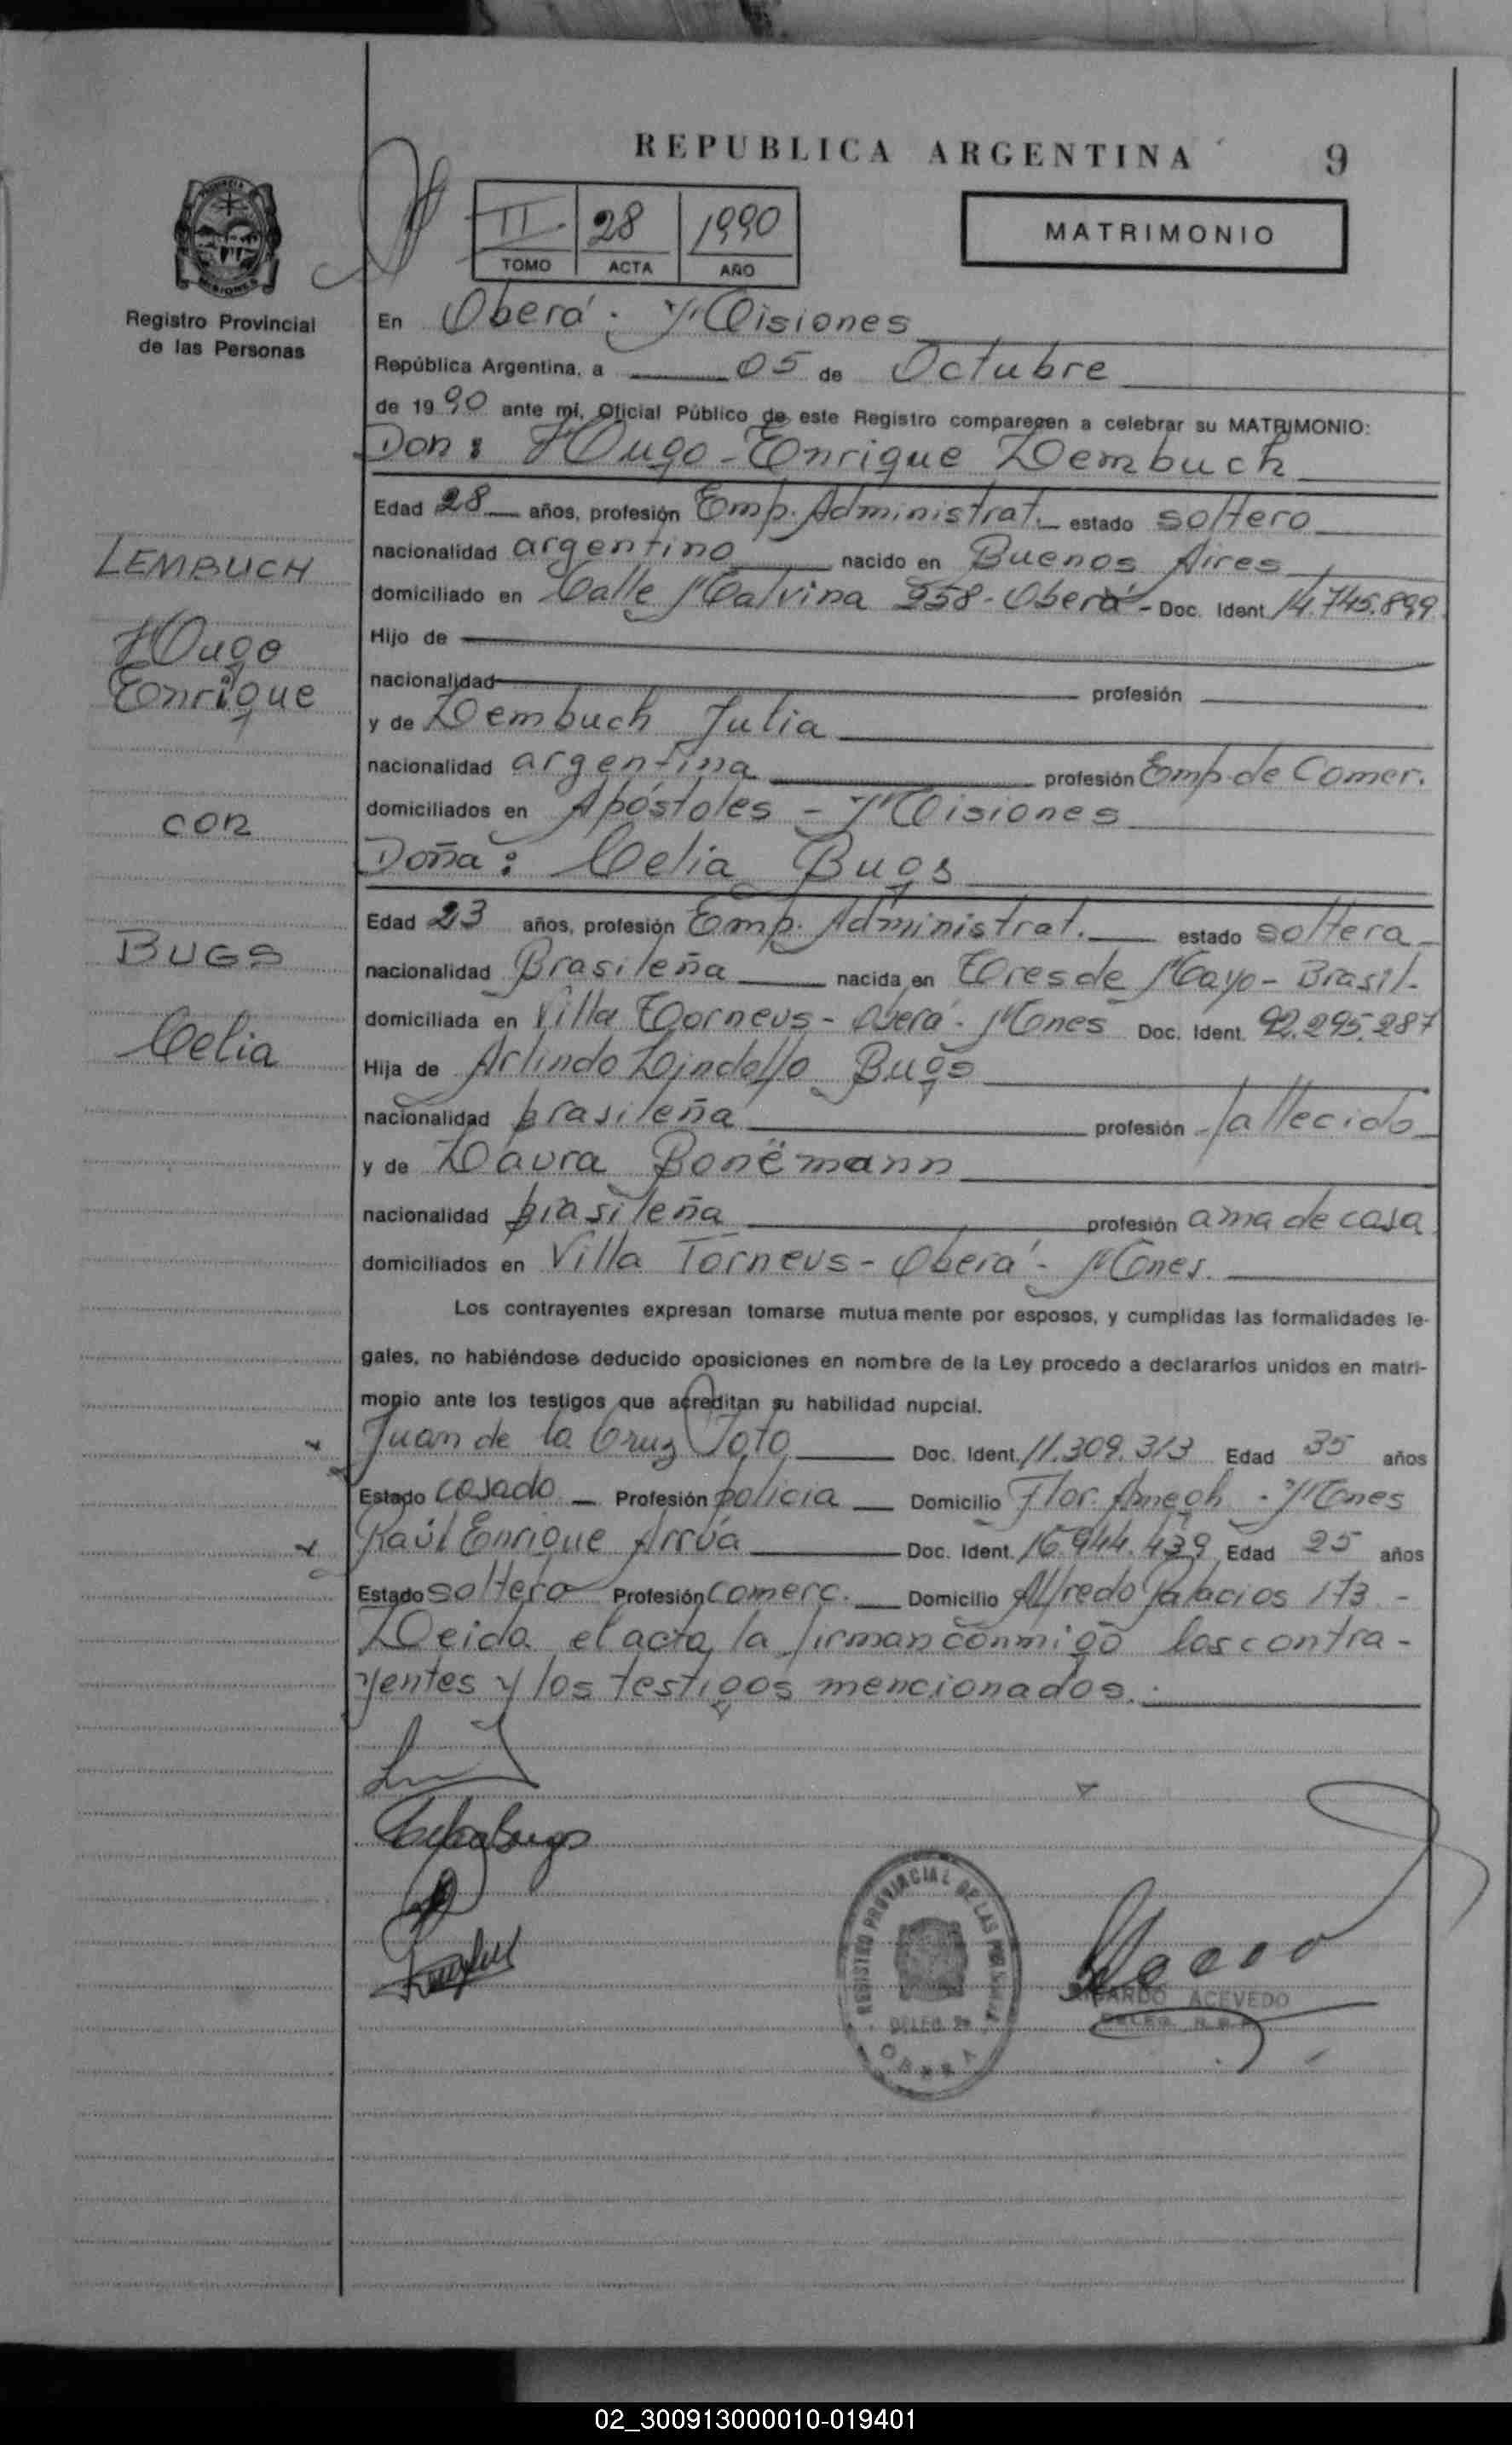 REPUBLICA ARGENTINA 9
II 28 1990
TOMO ACTA AÑO
MATRIMONIO
Registro Provincial
de las Personas
En Oberá. Misiones
República Argentina, a 05 de Octubre
de 1990 ante mi, Oficial Público de este Registro comparecen a celebrar su MATRIMONIO:
Don: Hugo-Enrique Lembuch
Edad 28 años, profesión Emp. Administrat. estado soltero
nacionalidad argentino nacido en Buenos Aires
domiciliado en Calle Malvina 958-Oberá- Doc. Ident. 14.745.899
Hijo de
nacionalidad profesión
y de Lembuch Julia
nacionalidad argentina profesión Emp. de Comer.
domiciliados en Apóstoles - Misiones
Doña: Celia Bugs
Edad 23 años, profesión Emp. Administrat. estado soltera
nacionalidad Brasileña nacida en Tres de Mayo - Brasil.
domiciliada en Villa Torneus - Oberá - Mones Doc. Ident. 92.295.287
Hija de Arlindo Lindolfo Bugs
nacionalidad brasileña profesión fallecido
y de Laura Bonëmann
nacionalidad brasileña profesión ama de casa
domiciliados en Villa Torneus - Oberá - Mones.
Los contrayentes expresan tomarse mutua mente por esposos, y cumplidas las formalidades le-
gales, no habiéndose deducido oposiciones en nombre de la Ley procedo a declararlos unidos en matri-
monio ante los testigos que acreditan su habilidad nupcial.
Juan de la Cruz Toto Doc. Ident. 11.309.313 Edad 35 años
Estado casado Profesión policia Domicilio Flor. Amegh. - Mones
Raúl Enrique Arrúa Doc. Ident. 16.944.439 Edad 25 años
Estado soltero Profesión comerc. Domicilio Alfredo Palacios 173 -
Leida el acta, la firman conmigo los contra-
yentes y los testigos mencionados.
LEMBUCH
Hugo
Enrique
con
BUGS
Celia
Celia Bugs
REGISTRO PROVINCIAL DE LAS PERSONAS
DELEG.
OBERA
ACEVEDO
DELEG. R.P.P.
02_300913000010-019401